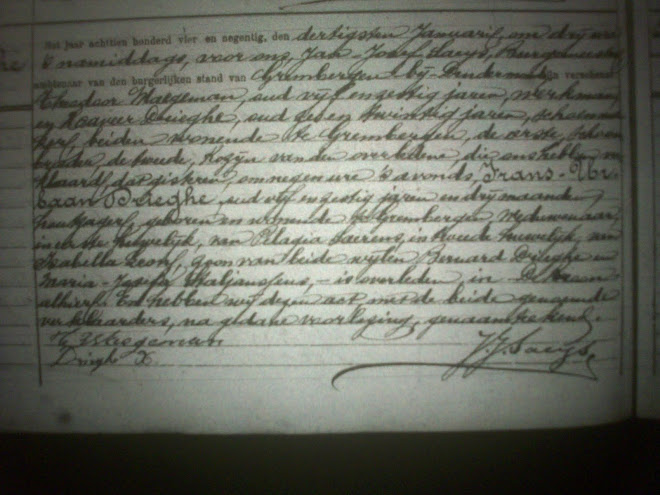 Het jaar achtien honderd vier en negentig, den dertigsten Januarij, om drij ure
's namiddags, voor ons, Jan-Josef Saeys, Burgemeester
ambtenaar van den burgerlijken stand van Grembergen bij Dendermonde zijn verschenen
Theodoor Waegeman, oud vijf en zestig jaren, werkman
en Xavier Drieghe, oud en twintig jaren,
beiden wonende te Grembergen, de eerste, schoon
broeder de tweede, Kozijn van den overledene, die ons hebben ver
klaard, dat gisteren, om negen ure 's avonds, Frans-Ur-
baan Drieghe, oud vijf en zestig jaren en drij maanden,
houtzager, geboren en wonende te Grembergen, Weduwenaar,
in eerste huwelijk, van Pelagia Saerens, in tweede huwelijk, van
Isabella, zoon van beide wijlen Bernard Drieghe en
Maria-Josefa, - is overleden in
alhier. En hebben wij dezen act met de beide genoemde
verklaarders, na gedane voorlezing, genaamteekend.
Waegeman
Drieghe X. J. J. Saeys